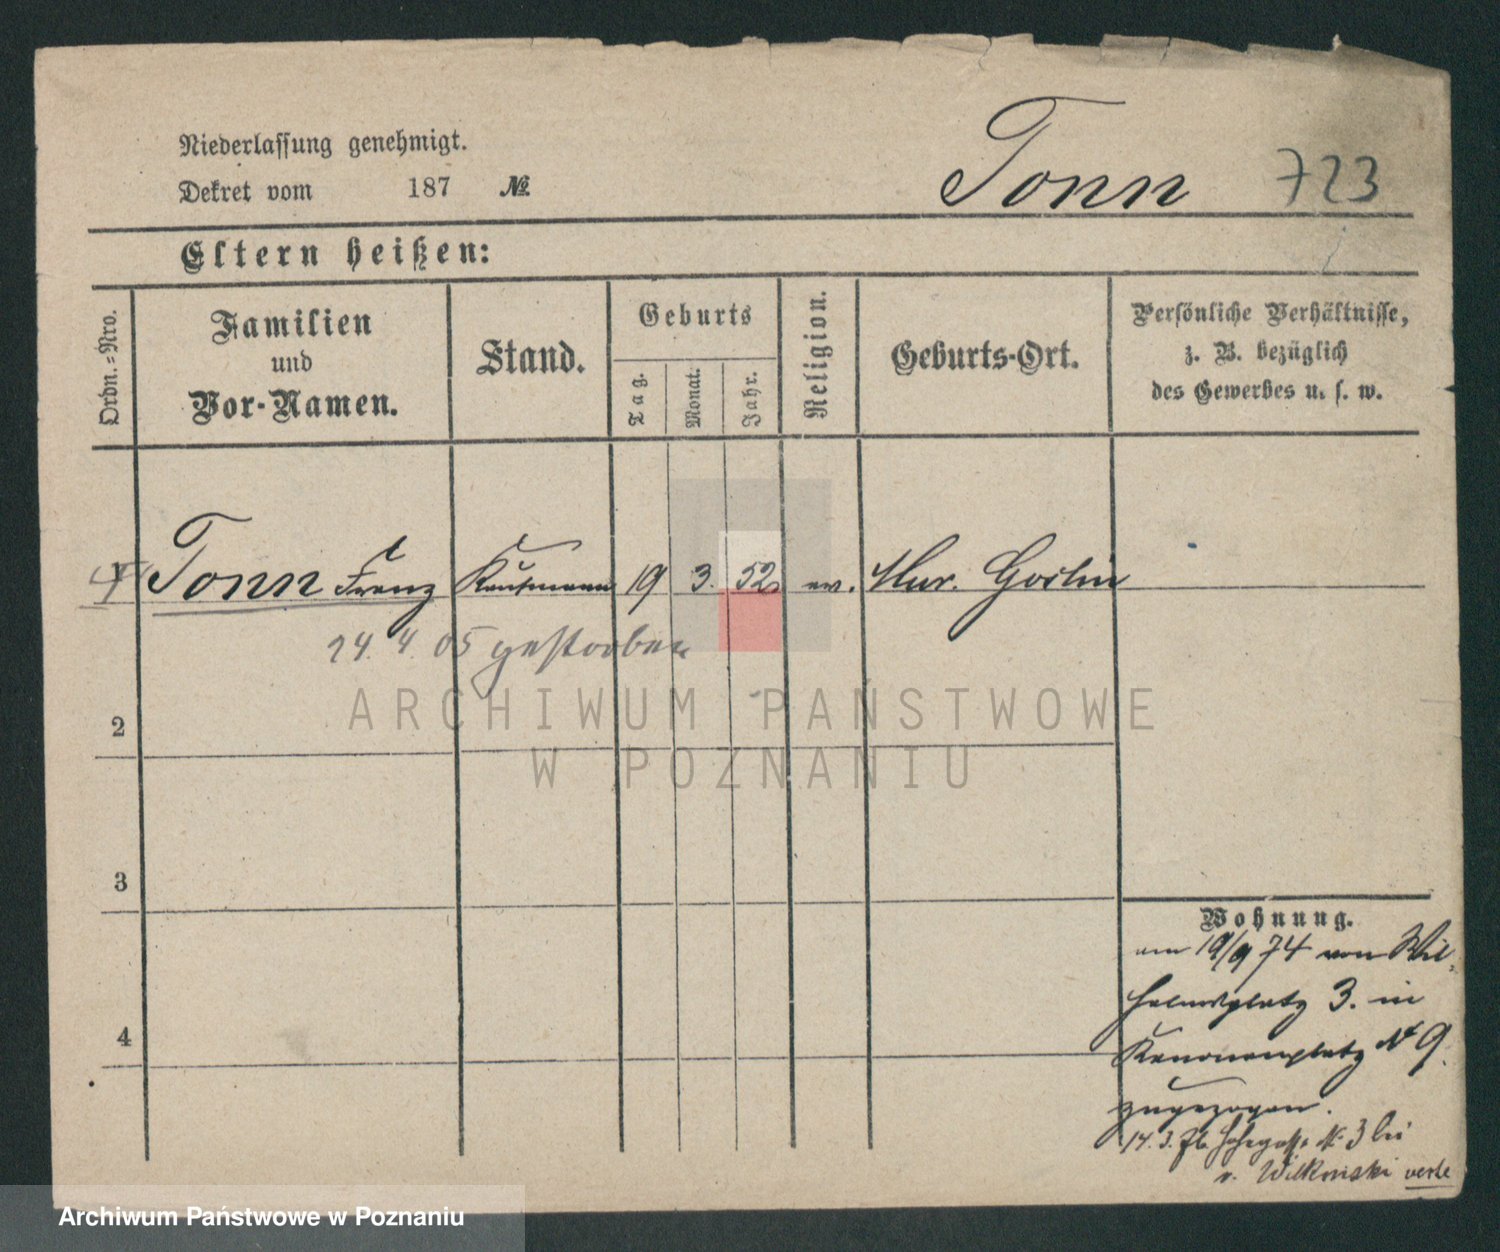 Niederlassung genehmigt.
Dekret vom 187 №
Tonn 723
Eltern heißen:
Ordn.-Nro.
Familien
und
Vor-Namen.
Stand.
Geburts
Tag.
Monat.
Jahr.
Religion.
Geburts-Ort.
Persönliche Verhältnisse,
z. B. bezüglich
des Gewerbes u. s. w.
1 Tonn Franz Kaufmann 19 3. 52 ev. Mur. Goslin
24. 4. 05 gestorben
2
3
4
ARCHIWUM PAŃSTWOWE
W POZNANIU
Wohnung.
am 19/9 74 von Wil-
helmsplatz 3. in
Kanonenplatz № 9.
zugezogen.
14. 3. 76 № 3 bei
v. Wilkonski
Archiwum Państwowe w Poznaniu